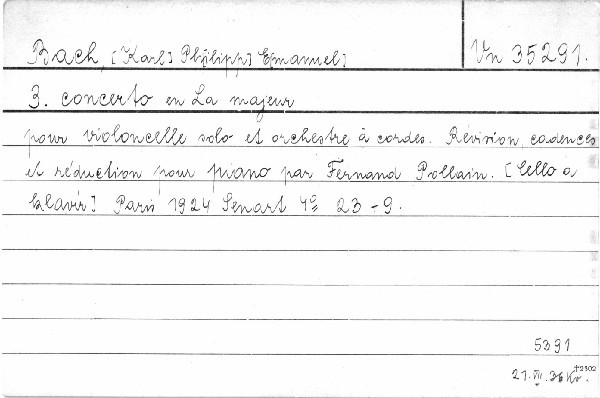 Bach, [Karl] Ph[ilipp] E[manuel] Vn 35291.
3. concerto en La majeur
pour violoncelle solo et orchestre à cordes. Revision, cadences
et réduction pour piano par Fernand Pollain. [Cello a
klavír] Paris 1924 Senart 4° 23 - 9.
5391
21. VII. 36 Kr. +2302